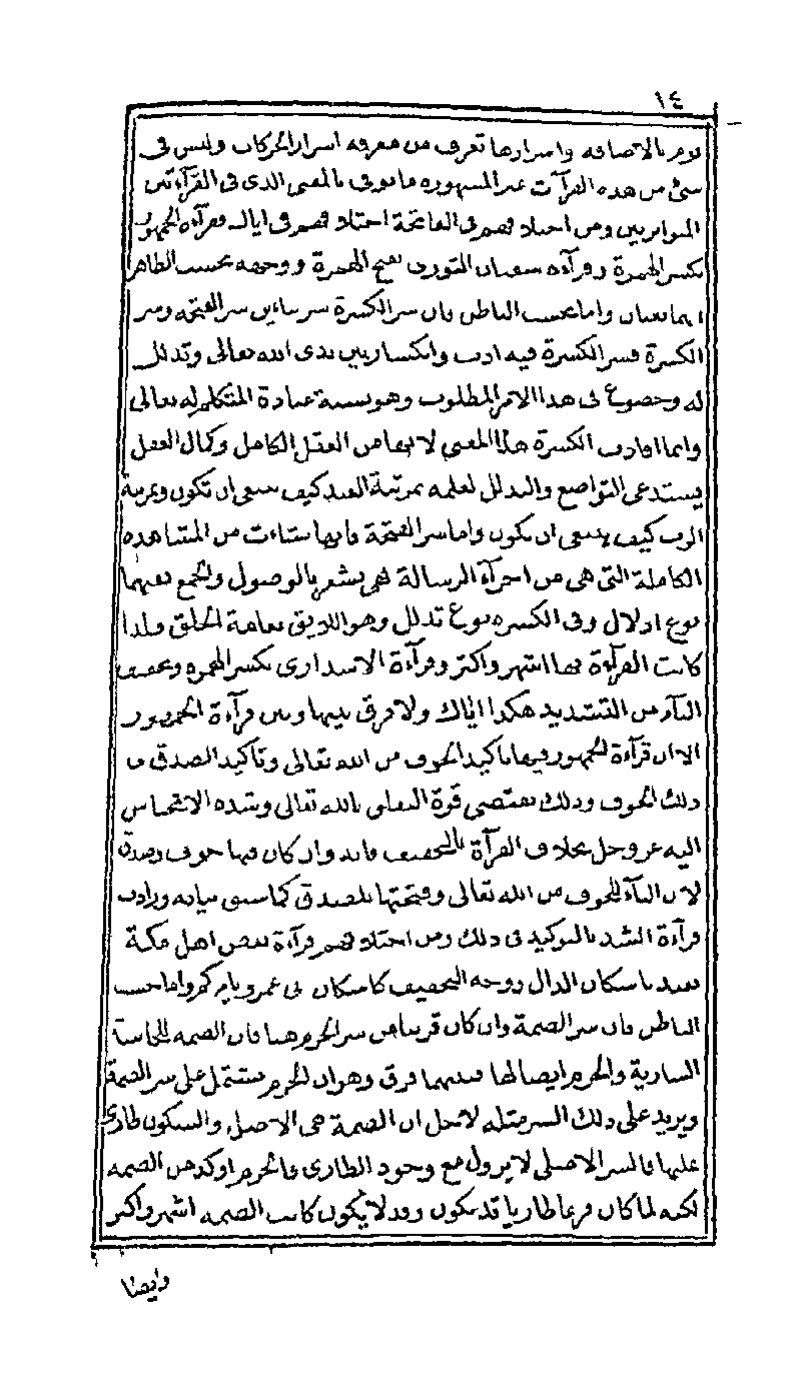 ١٤
يوم بالاضافه واسرارها تعرف من معرفه اسرار الحركات وليس فى
شئ من هذه القرآت غير المشهوره ما يوفى بالمعنى الذى فى القرآءتين
المتواترتين ومن اختلافهم فى الفاتحة اختلافهم فى اياك فقرآءة الجمهور
بكسر الهمزة وقرآءة سفيان الثورى بفتح الهمزة ووجهه بحسب الظاهر
انهما لغتان واما بحسب الباطن فان سر الكسرة سر يباين سر الفتحه وسر
الكسرة فسر الكسرة فيه ادب وانكسار بين يدى الله تعالى وتذلل
له وخضوع فى هذا الامر المطلوب وهو نسبة عبادة المتكلم له تعالى
وانما افادت الكسرة هذا المعنى لانها من العقل الكامل وكمال العقل
يستدعى التواضع والتذلل لعلمه بمرتبة العبد كيف ينبغى ان تكون وبمرتبة
الرب كيف ينبغى ان تكون واما سر الفتحة فانها نشاءت من المشاهده
الكاملة التى هى من اجزآء الرسالة فهى يشعر بالوصول والجمع ففيها
نوع ادلال وفى الكسره نوع تذلل وهو اللايق بعامة الخلق فلذا
كانت القرآءة بها اشهر واكثر وقرآءة الاسوارى بكسر الهمزه وتخفيف
اليآء من التشديد هكذا اياك ولا فرق بينها وبين قرآءة الجمهور
الا ان قرآءة الجمهور فيها تاكيد الخوف من الله تعالى وتاكيد الصدق فى
ذلك الخوف وذلك يقتضى قوة التعلق بالله تعالى وشده الانحياش
اليه عز وجل بخلاف القرآة بالتخفيف فانه وان كان فيها خوف وصدق
لان اليآء للخوف من الله تعالى وفتحتها للصدق كما سبق بيانه وزادت
قرآءة الشد بالتوكيد فى ذلك ومن اختلافهم قرآءة بعض اهل مكة
نعبد باسكان الدال ووجه التخفيف كاسكان ابى عمرو يامركم واما حسب
الباطن فان سر الضمة وان كان قريبا من سر الجزم هنا فان الضمه للحاسة
السارية والجزم ايضا لها فبينهما فرق وهو ان الجزم مشتمل على سر الضمة
ويزيد على ذلك السر مثله لاجل ان الضمة هى الاصل والسكون طارى
عليها فالسر الاصلى لا يزول مع وجود الطارى فالجزم اوكد من الضمه
لكنه لما كان فرعا طاريا قد يكون وقد لا يكون كانت الضمه اشهر واكثر
وايضا